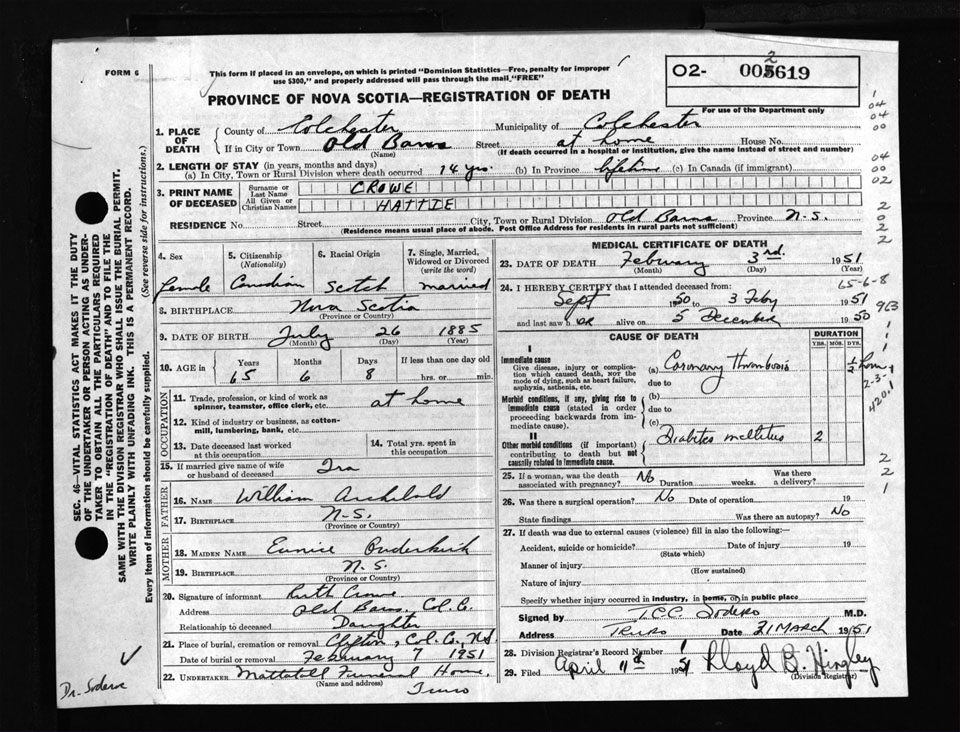 FORM 6
This form if placed in an envelope, on which is printed "Dominion Statistics—Free, penalty for improper
use $300," and properly addressed will pass through the mail "FREE"
O2- 002619
For use of the Department only
PROVINCE OF NOVA SCOTIA—REGISTRATION OF DEATH
1. PLACE OF DEATH County of Colchester Municipality of Colchester
If in City or Town Old Barns Street at home House No.
(Name) (If death occurred in a hospital or institution, give the name instead of street and number)
2. LENGTH OF STAY (in years, months and days)
(a) In City, Town or Rural Division where death occurred 14 yrs. (b) In Province lifetime (c) In Canada (if immigrant)
3. PRINT NAME OF DECEASED Surname or Last Name CROWE
All Given or Christian Names HATTIE
RESIDENCE No. Street City, Town or Rural Division Old Barns Province N-S.
(Residence means usual place of abode. Post Office Address for residents in rural parts not sufficient)
4. Sex 5. Citizenship (Nationality) 6. Racial Origin 7. Single, Married, Widowed or Divorced (write the word)
Female Canadian Scotch married
8. BIRTHPLACE Nova Scotia
(Province or Country)
9. DATE OF BIRTH July 26 1885
(Month) (Day) (Year)
10. AGE in Years Months Days If less than one day old
65 6 8 hrs. or min.
OCCUPATION
11. Trade, profession, or kind of work as spinner, teamster, office clerk, etc. at home
12. Kind of industry or business, as cotton-mill, lumbering, bank, etc.
13. Date deceased last worked at this occupation 14. Total yrs. spent in this occupation
15. If married give name of wife or husband of deceased Ira
FATHER
16. NAME William Archibald
17. BIRTHPLACE N-S.
(Province or Country)
MOTHER
18. MAIDEN NAME Eunice
19. BIRTHPLACE N.S.
(Province or Country)
20. Signature of informant Ruth Crowe
Address Old Barns, Col. Co.
Relationship to deceased Daughter
21. Place of burial, cremation or removal Clifton, Col. Co, N.S.
Date of burial or removal February 7 1951
22. UNDERTAKER Mattatall Funeral Home,
(Name and address) Truro
MEDICAL CERTIFICATE OF DEATH
23. DATE OF DEATH February 3rd. 1951
(Month) (Day) (Year)
24. I HEREBY CERTIFY that I attended deceased from: 65-6-8
Sept 1950 to 3 Feby 1951
and last saw her alive on 5 December 1950
CAUSE OF DEATH DURATION
YRS. MOS. DYS.
I
Immediate cause
Give disease, injury or complication which caused death, NOT the mode of dying, such as heart failure, asphyxia, asthenia, etc.
(a) Coronary Thrombosis ½ hour
due to
Morbid conditions, if any, giving rise to immediate cause (stated in order proceeding backwards from immediate cause).
(b)
due to
(c)
II
Other morbid conditions (if important) contributing to death but not causally related to immediate cause.
Diabetes mellitus 2
25. If a woman, was the death associated with pregnancy? No Duration weeks. Was there a delivery?
26. Was there a surgical operation? No Date of operation 19
State findings Was there an autopsy? No
27. If death was due to external causes (violence) fill in also the following:—
Accident, suicide or homicide? Date of injury 19
(State which)
Manner of injury
(How sustained)
Nature of injury
Specify whether injury occurred in industry, in home, or in public place
Signed by TCC Sodero M.D.
Address TRURO Date 21 MARCH 1951
28. Division Registrar's Record Number 1
29. Filed April 11th 1951 Lloyd B. Hingley
(Division Registrar)
SEC. 46—VITAL STATISTICS ACT MAKES IT THE DUTY
OF THE UNDERTAKER OR PERSON ACTING AS UNDER-
TAKER TO OBTAIN ALL THE PARTICULARS REQUIRED
IN THE "REGISTRATION OF DEATH" AND TO FILE THE
SAME WITH THE DIVISION REGISTRAR WHO SHALL ISSUE THE BURIAL PERMIT.
WRITE PLAINLY WITH UNFADING INK. THIS IS A PERMANENT RECORD.
Every item of information should be carefully supplied. (See reverse side for instructions.)
1
04
04
00
04
00
02
2
0
2
2
9(3
2-3-1
420.1
2
2
1
Dr. Sodero